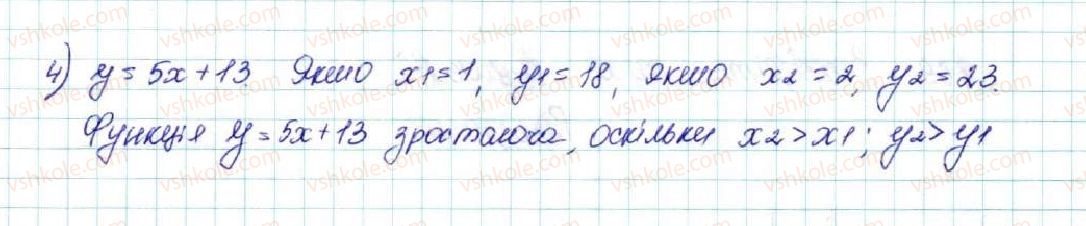 4) y = 5x + 13. Якщо x1 = 1, y1 = 18, якщо x2 = 2, y2 = 23.
Функція y = 5x + 13 зростаюча, оскільки x2 > x1; y2 > y1